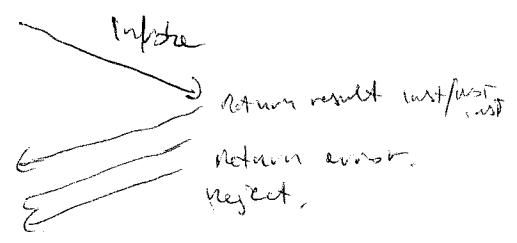 Invoke
Return result last/not last
Return error.
Reject.